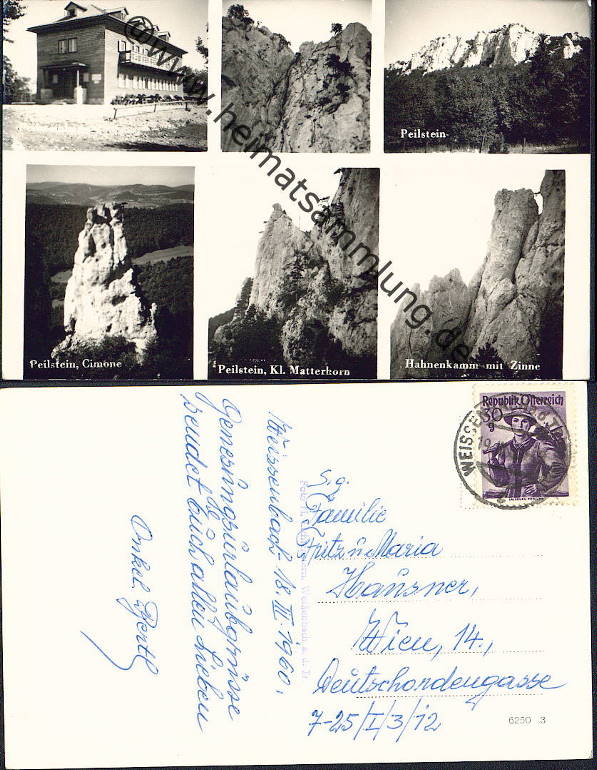 ©www.heimatsammlung.de
Peilstein
Peilstein, Cimone
Peilstein, Kl. Matterhorn
Hahnenkamm mit Zinne
Republik Österreich
30
g
WEISSEN
Weissenbach 18. III. 1960.
Genesungsurlaubgrüsse
sendet Euch allen Lieben
Onkel
S.g.
Familie
Fritz u Maria
Hausner,
Wien, 14.,
Deutschordengasse
7-25/I/3/12
6250 3